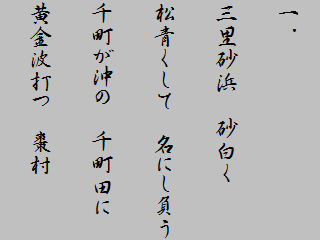 一．
三里砂浜　砂白く
松青くして　名にし負う
千町が沖の　千町田に
黄金波打つ　棗村